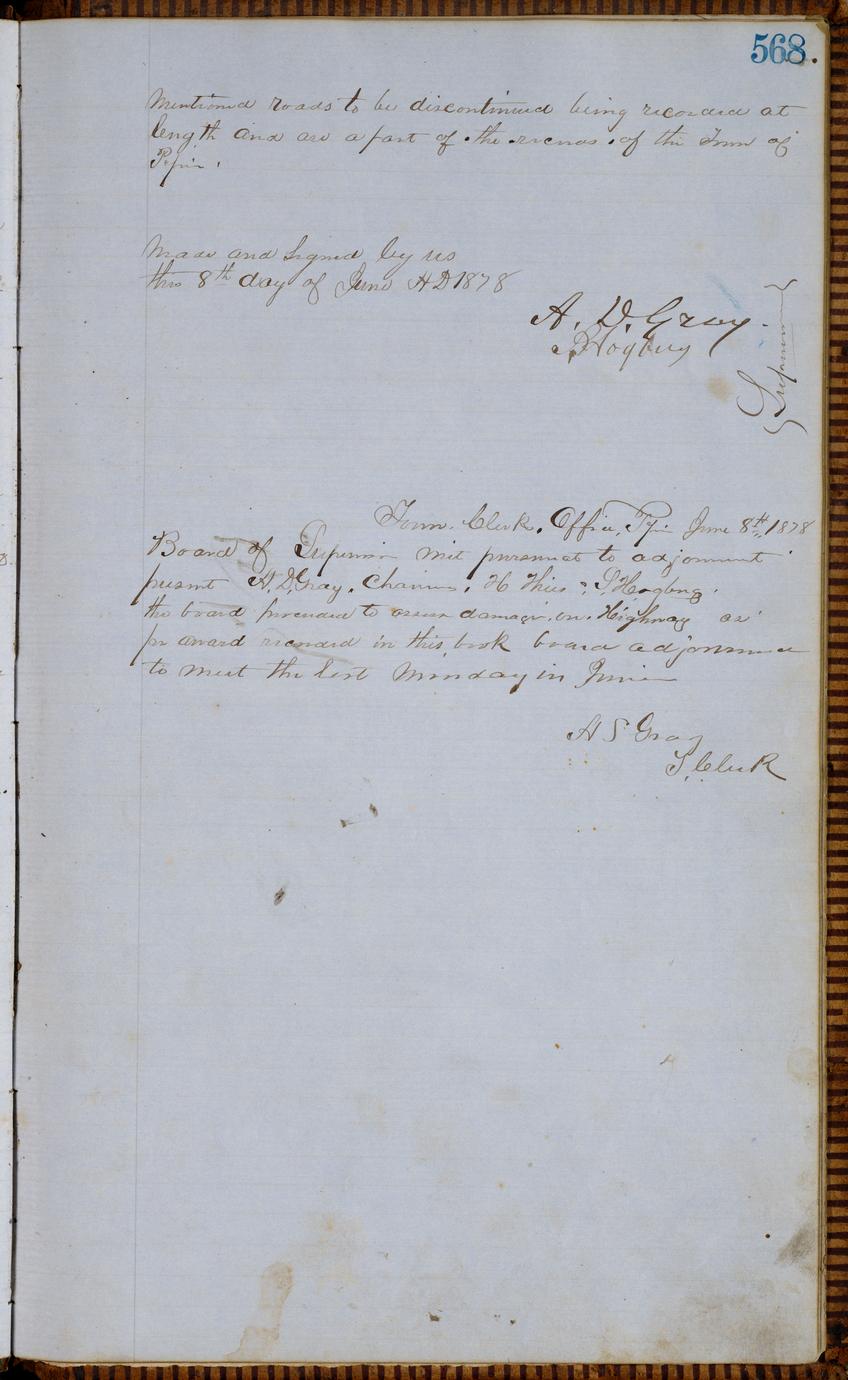 568.
mentioned roads to be discontinued being recorded at
length and are a part of the records of the Town of
Pepin.
Made and Signed by us
this 8th day of June AD 1878
A. D. Gray.
S Hogberg
Supervisors
Town Clerk Office, Pepin June 8th, 1878
Board of Supervisors met pursuant to adjournment
present A. D. Gray. Chairman. H Thies & S. Hogberg.
the board proceeded to assess damages on Highway as
per award recorded in this book board adjourned
to meet the last Monday in June
A S Gray
T. Clerk